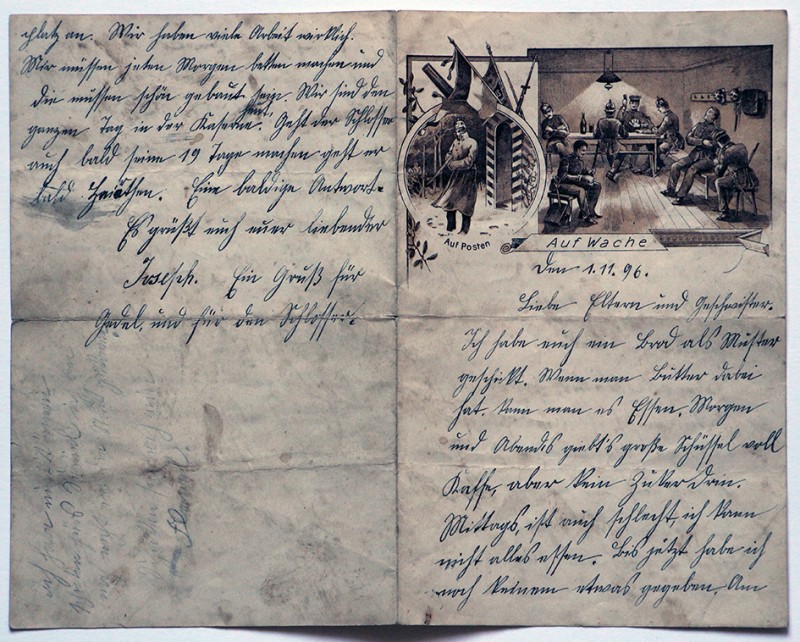 chplatz an. Wir haben viele Arbeit wirklich.
Wir müssen jeden Morgen betten machen und
die müssen schön gebaut sein. Wir sind den
ganzen Tag in der Kaserne. Geht der Schlosser
auch bald seine 19 Tage machen geht er
bald Eine baldige Antwort.
Es grüßt euch euer liebender
Joseph. Ein Gruß für
und für den Schlosser.
Auf Posten
Auf Wache
Den 1.11.96.
Liebe Eltern und Geschwister.
Ich habe euch ein Brod als Muster
geschikt. Wenn man Butter dabei
hat kann man es Essen. Morgen
und Abends giebt's große Schüssel voll
Kaffe, aber kein Zuker drin.
Mittags, ist auch schlecht, ich kann
nicht alles essen. Bis jetzt habe ich
noch keinem etwas gegeben. Am